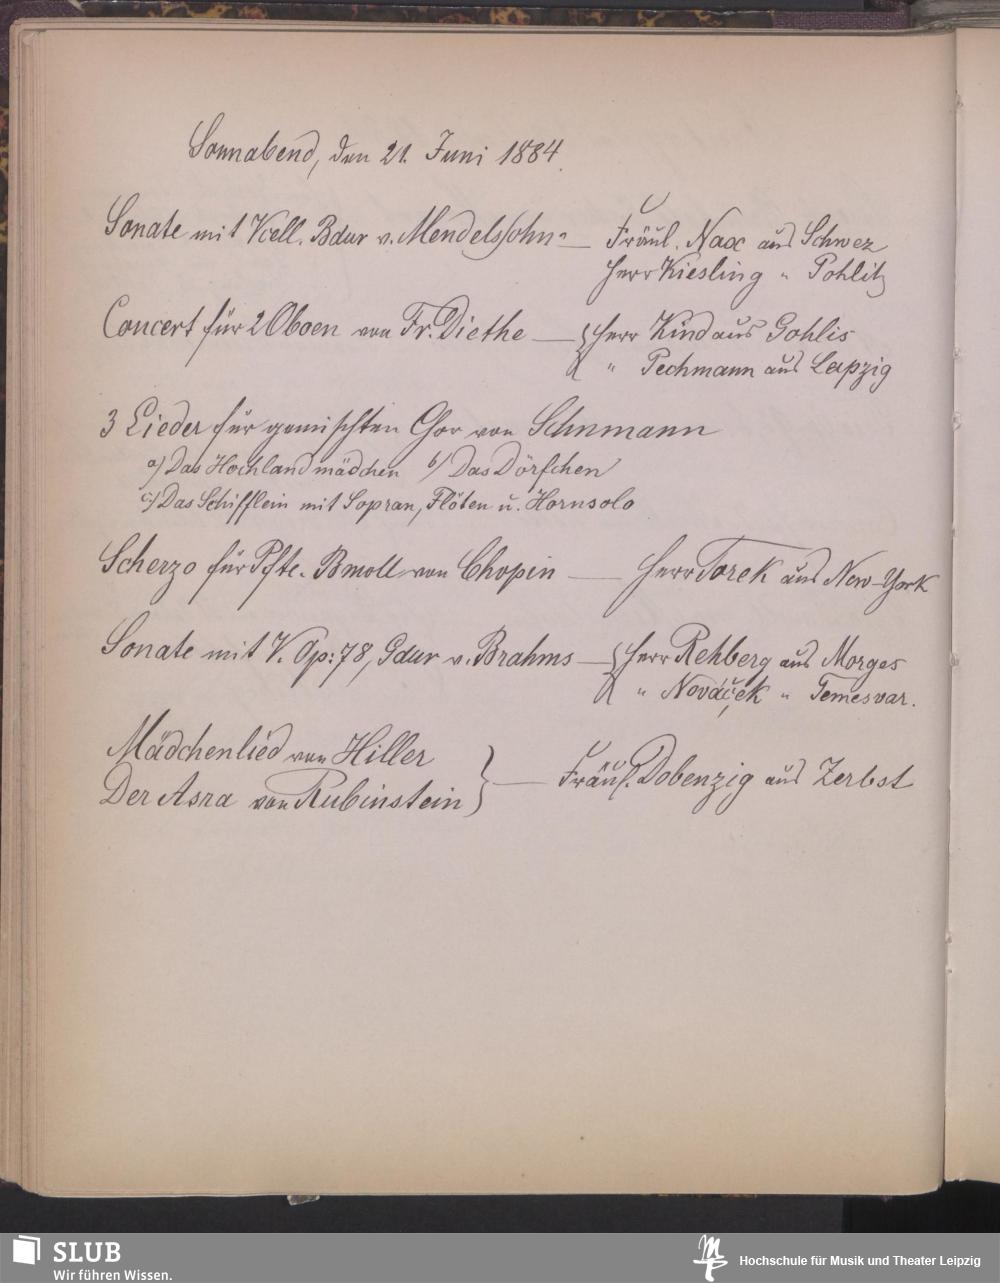 Sonnabend, den 21. Juni 1884.
Sonate mit Vcell. Bdur v. Mendelssohn — Fräul. Nax aus Schwez
Herr Kiesling " Pohlitz
Concert für 2 Oboen von Fr. Diethe — Herr Kind aus Gohlis
" Pechmann aus Leipzig
3 Lieder für gemischten Chor von Schumann
a) Das Hochlandmädchen b) Das Dörfchen
c) Das Schifflein mit Sopran, Flöten u. Hornsolo
Scherzo für Pfte. Bmoll von Chopin — Herr Torek aus New-York
Sonate mit V. Op: 78, Gdur v. Brahms — Herr Rehberg aus Morges
" Nováček " Temesvar.
Mädchenlied von Hiller
Der Asra von Rubinstein } — Fräul. Dobenzig aus Zerbst
SLUB
Wir führen Wissen.
Hochschule für Musik und Theater Leipzig